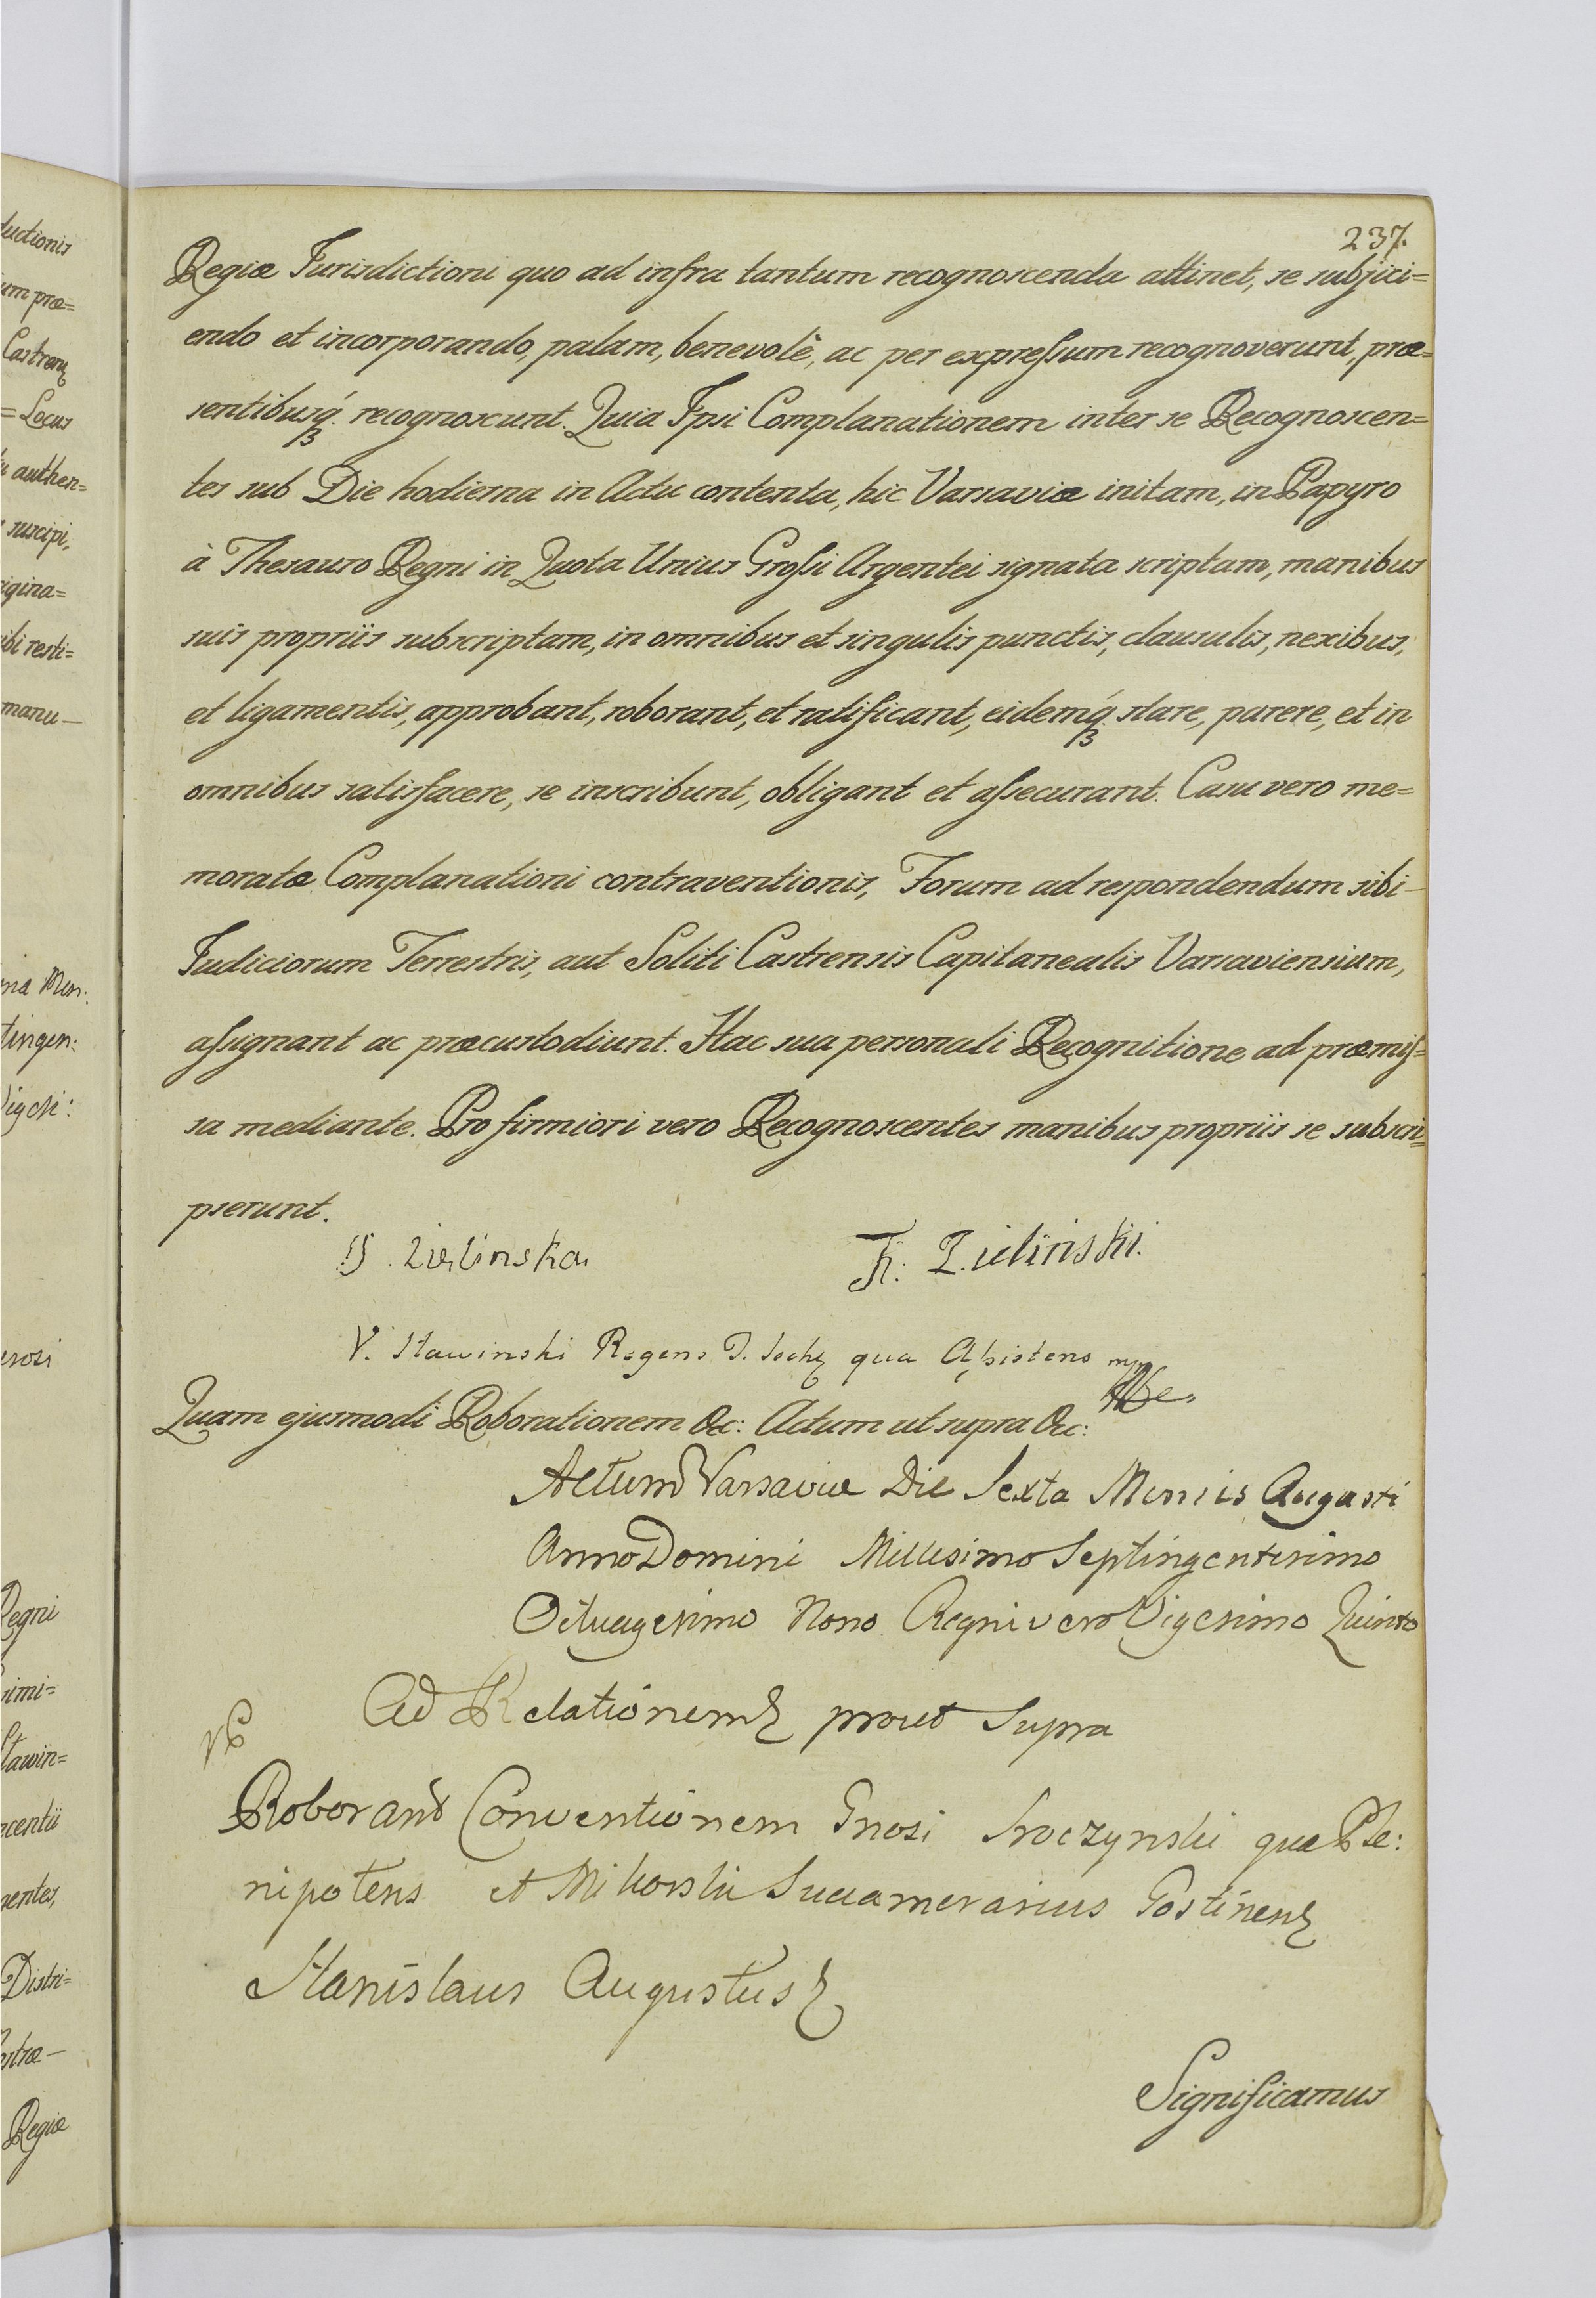 237.
Regiæ Jurisdictioni quo ad infra tantum recognoscenda attinet, se subjici=
endo et incorporando, palam, benevolè, ac per expressum recognoverunt, præ=
sentibusq́ recognoscunt. Quia Ipsi Complanationem inter se Recognoscen=
tes sub Die hodierna in Actu contenta, hic Varsaviæ initam, in Papyro
à Thesauro Regni in Quota Unius Grossi Argentei signata scriptam, manibus
suis propriis subscriptam, in omnibus et singulis punctis, clausulis, nexibus,
et ligamentis, approbant, roborant, et ratificant, eidemq́ stare, parere, et in
omnibus satisfacere, se inscribunt, obligant et assecurant. Casu vero me=
moratæ Complanationi contraventionis, Forum ad respondendum sibi
Judiciorum Terrestris, aut Soliti Castrensis Capitanealis Varsaviensium,
assignant ac præcustodiunt. Hac sua personali Recognitione ad præmis=
sa mediante. Pro firmiori vero Recognoscentes manibus propriis se subscri=
pserunt.
Zielinska F: Zielinski.
V. Stawinski Regens qua Assistens mp
Quam ejusmodi Roborationem &c: Actum ut supra &c:
Actum Varsaviæ Die Sexta Mensis Augusti
Anno Domini Millesimo Septingentesimo
Octuagesimo Nono Regni vero Vigesimo Quinto
Ad Relationem prout Supra
Roborant Conventionem Gnosi Sroczynski qua Ple:
nipotens et Mikorski Succamerarius Gostinen
Stanislaus Augustus
Significamus